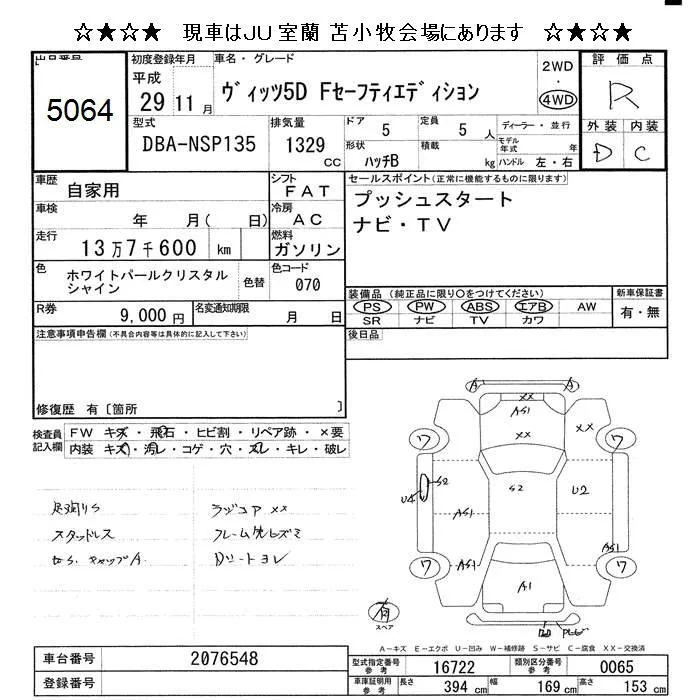 ☆★☆★ 現車はJU室蘭 苫小牧会場にあります ☆★☆★
出品番号
5064
初度登録年月
平成
29 11 月
車名・グレード
ヴィッツ5D Fセーフティエディション
2WD
・
4WD
評価点
R
外装 内装
D C
型式
DBA-NSP135
排気量
1329
cc
ドア 5
定員 5 人
形状 ハッチB
積載 kg
ディーラー・並行
モデル年式 年
ハンドル 左・右
車歴 自家用
シフト FAT
車検 年 月( 日)
冷房 AC
走行 13万7千600 km
燃料 ガソリン
色 ホワイトパールクリスタルシャイン
色替
色コード 070
R券 9,000 円
名変通知期限 月 日
セールスポイント(正常に機能するものに限ります)
プッシュスタート
ナビ・TV
装備品 (純正品に限り○をつけてください)
PS PW ABS エアB AW
SR ナビ TV カワ
新車保証書
有・無
後日品
注意事項申告欄(不具合内容等は具体的に記入して下さい)
修復歴 有〔箇所 〕
検査員記入欄
FW キズ・飛石・ヒビ割・リペア跡・×要
内装 キズ・汚レ・コゲ・穴・スレ・キレ・破レ
足廻りS
スタッドレス
ラジコア ××
Dシートヨレ
ワ ワ
ワ ワ
A A
××
AS1
××
××
S2
U4
S2
U2
AS1
AS1
AS1
AS1
A1
有
スペア
A-キズ E-エクボ U-凹み W-補修跡 S-サビ C-腐食 XX-交換済
車台番号 2076548
登録番号
型式指定番号 参考 16722
類別区分番号 参考 0065
車庫証明用 参考 長さ 394 cm 幅 169 cm 高さ 153 cm